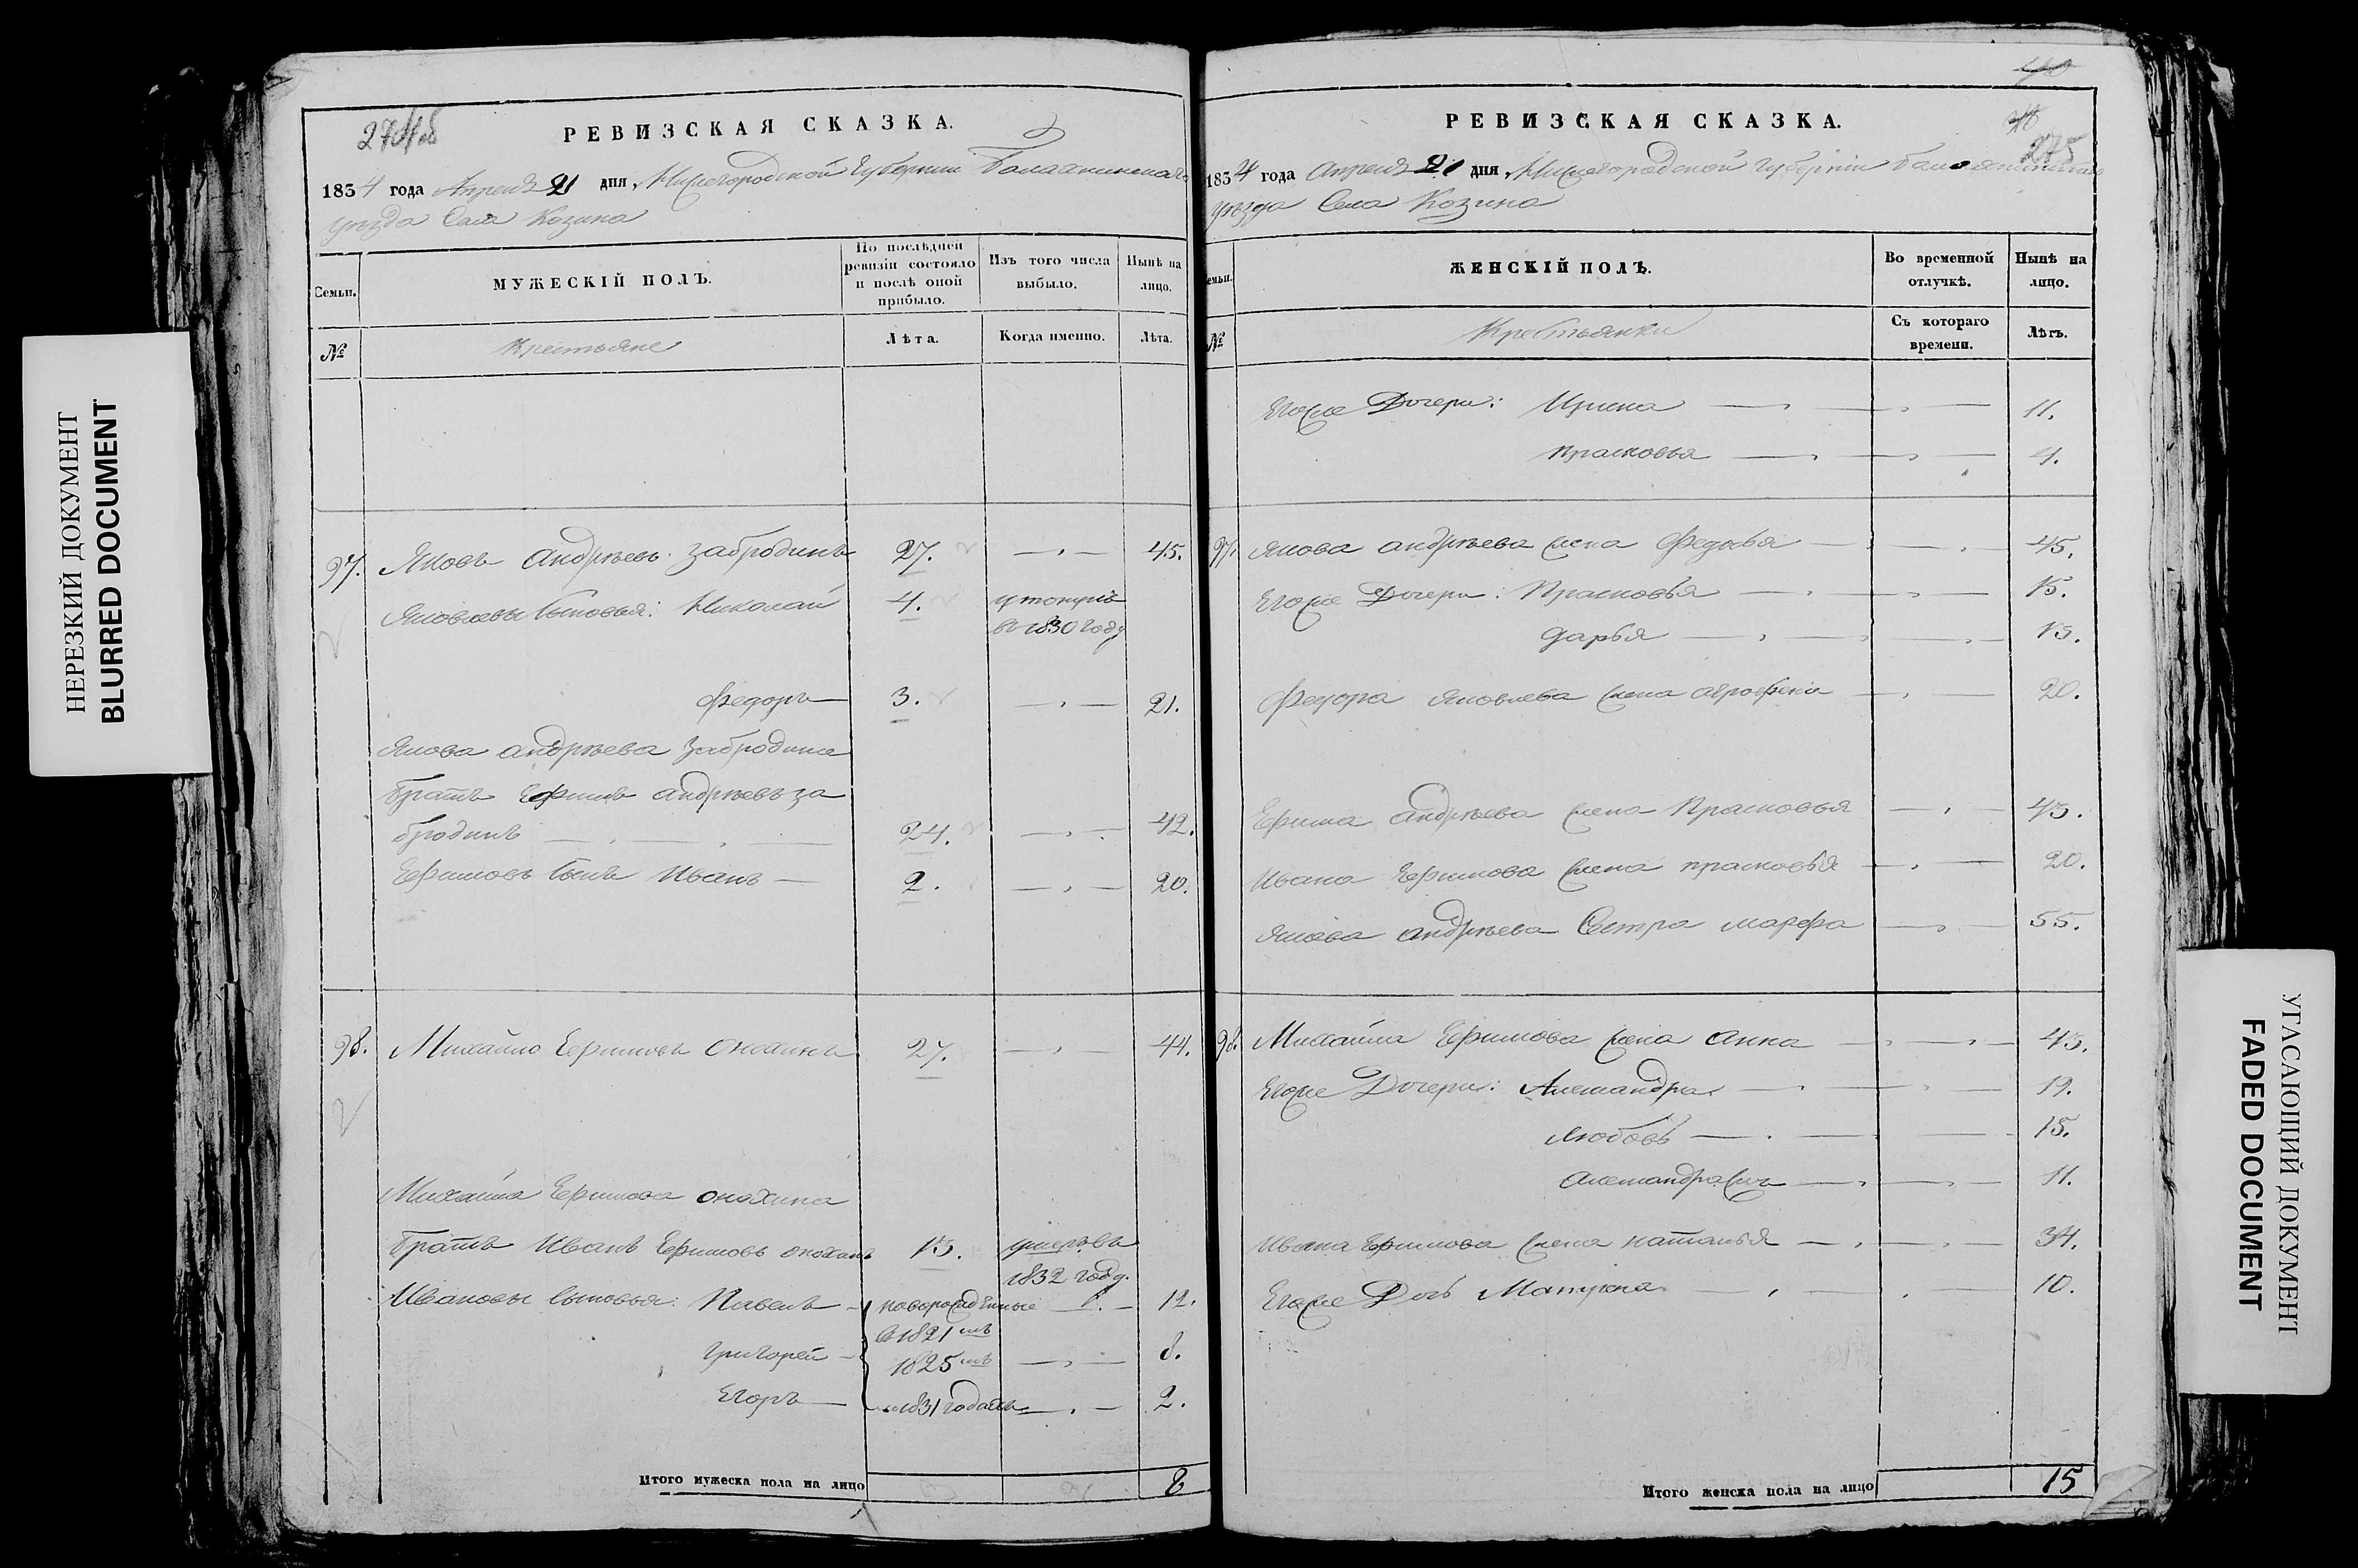 НЕРЕЗКИЙ ДОКУМЕНТ
BLURRED DOCUMENT
274об
РЕВИЗСКАЯ СКАЗКА.
1834 года Апреля 21 дня, Нижегородской Губернии Балахнинскаго
уезда Села Козина
Семьи.
МУЖЕСКІЙ ПОЛЪ.
По послѣдней ревизіи состояло и послѣ оной прибыло.
Изъ того числа выбыло.
Нынѣ на лицо.
№
Крестьяне
Лѣта.
Когда именно.
Лѣта.
97. Яковъ Андреевъ Забродинъ 27. 45.
Яковлевы Сыновья: Николай 4. утонулъ
въ 1830 году
Федоръ 3. 21.
Якова Андреева Забродина
братъ Ефимъ Андреевъ За
бродинъ 24. 42.
Ефимовъ Сынъ Иванъ 2. 20.
98. Михайло Ефимовъ 27. 44.
Михайла Ефимова
братъ Иванъ Ефимовъ 15. умеръ въ
1832 году.
Ивановы Сыновья: Павелъ новорожденные 12.
в 1821мъ
Григорей 1825мъ 8.
Егоръ 1831 годахъ 2.
Итого мужеска пола на лицо 8
40
275
РЕВИЗСКАЯ СКАЗКА.
1834 года Апреля 21 дня, Нижегородской Губернии Балахнинскаго
уезда Села Козина
Семьи.
ЖЕНСКІЙ ПОЛЪ.
Во временной отлучкѣ.
Нынѣ на лицо.
№
Крестьянки
Съ котораго времени.
Лѣтъ.
Егоже Дочери: Ирина 11.
Прасковья 4.
97. Якова Андреева жена Федосья 45.
Егоже Дочери: Прасковья 15.
Дарья 13.
Федора Яковлева жена Аграфена 20.
Ефима Андреева жена Прасковья 43.
Ивана Ефимова жена Прасковья 20.
Якова Андреева Сестра Марфа 55.
98. Михайла Ефимова жена Анна 43.
Егоже Дочери: Александра 19.
Любовь 15.
Александра жъ 11.
Ивана Ефимова жена Наталья 34.
Егоже Дочь Матрена 10.
Итого женска пола на лицо 15
УГАСАЮЩИЙ ДОКУМЕНТ
FADED DOCUMENT